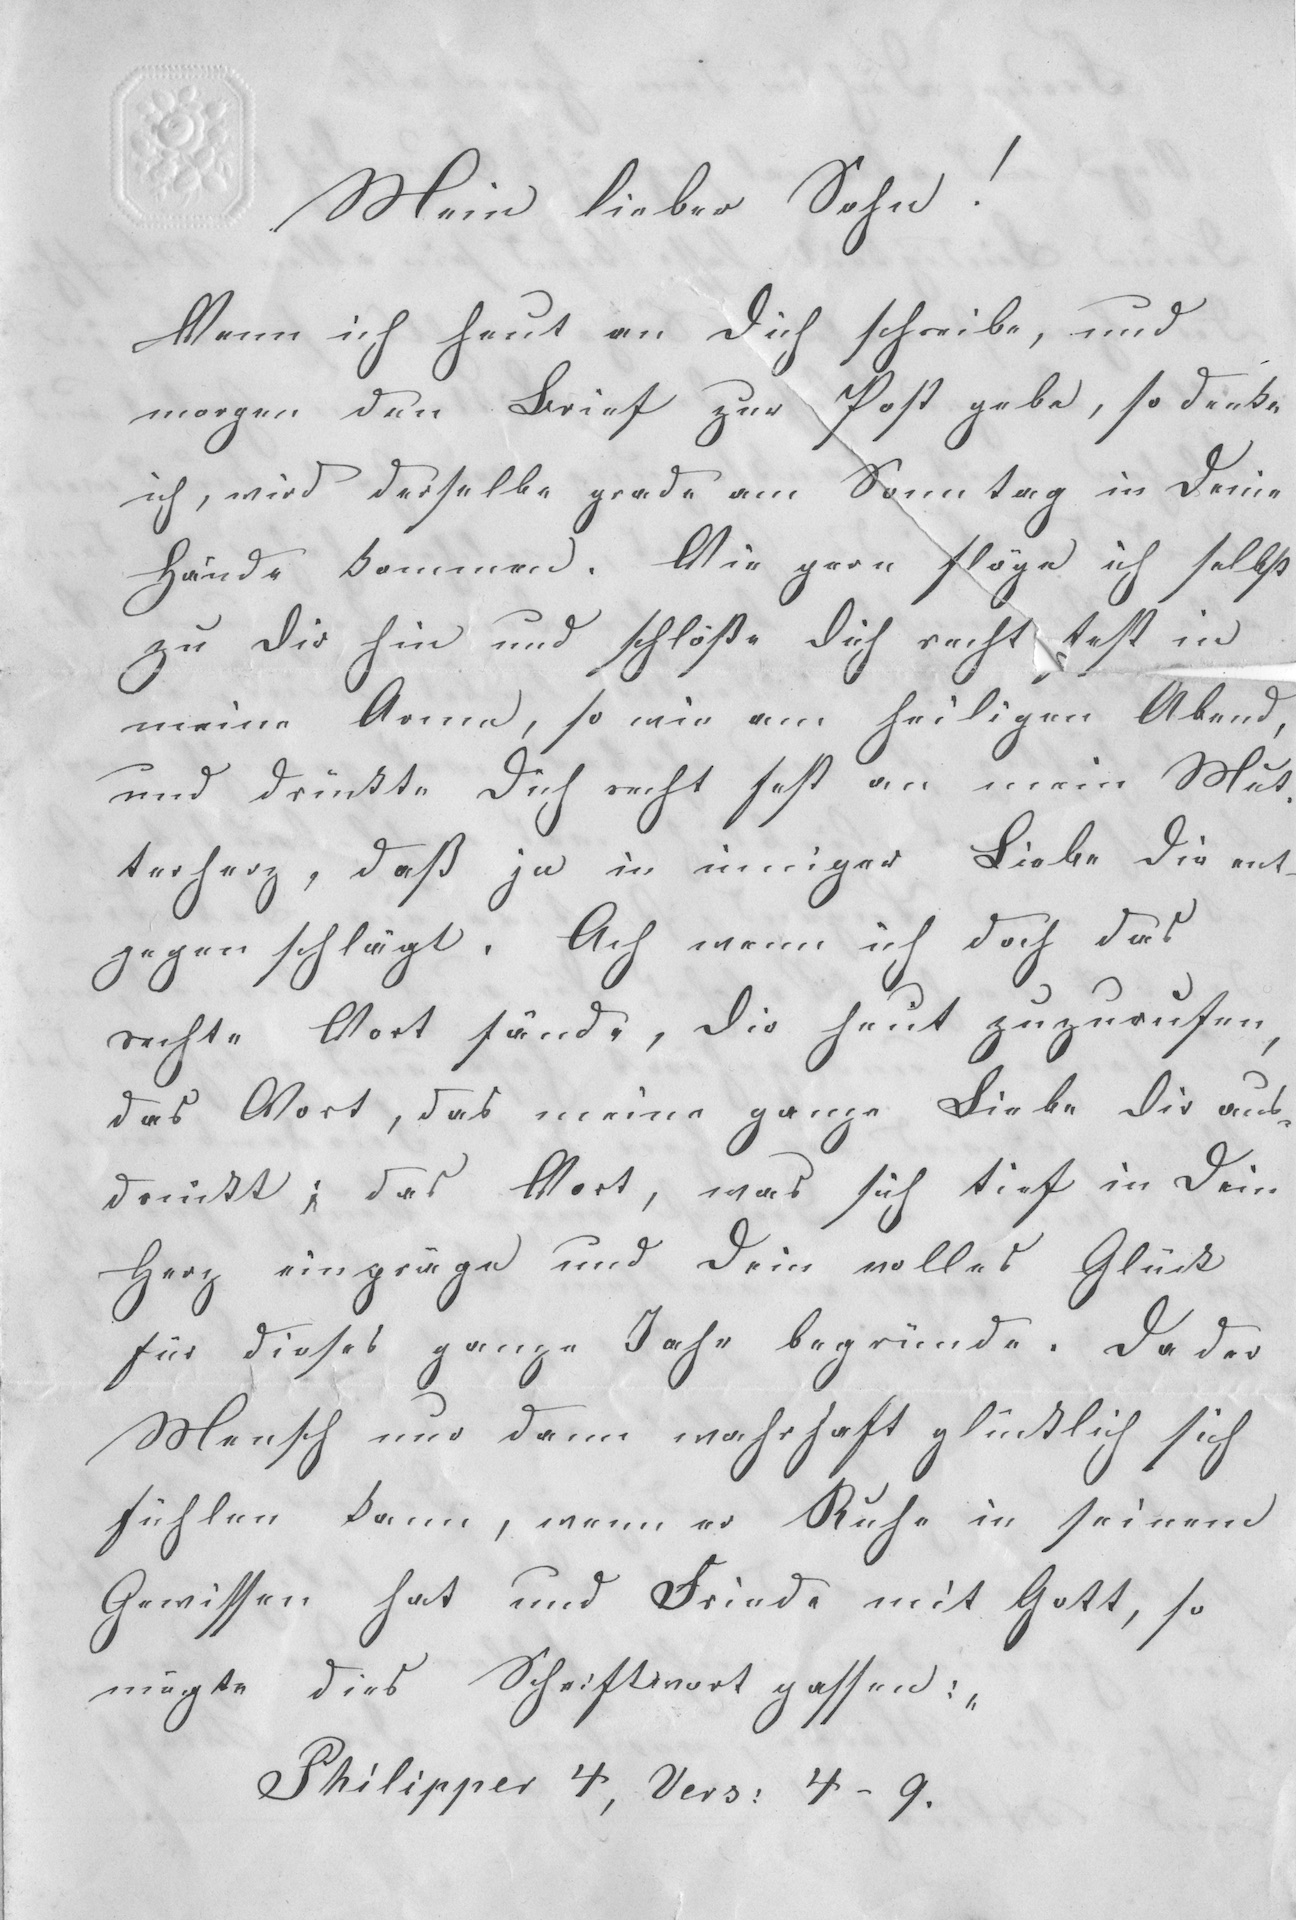 Mein lieber Sohn!
Wenn ich heut an Dich schreibe, und
morgen den Brief zur Post gebe, so denke
ich, wird derselbe grade am Sonntag in Deine
Hände kommen. Wie gern flöge ich selbst
zu Dir hin und schlöße Dich recht fest in
meine Arme, so wie am heiligen Abend,
und drückte Dich recht fest an mein Mut-
terherz, daß ja in inniger Liebe Dir ent-
gegen schlägt. Ach wenn ich doch das
rechte Wort fände, Dir heut zuzurufen,
das Wort, das meine ganze Liebe Dir aus-
drückt; das Wort, was sich tief in Dein
Herz einpräge und Dein volles Glück
für dieses ganze Jahr begründe. Da der
Mensch nur dann wahrhaft glücklich sich
fühlen kann, wenn er Ruhe in seinem
Gewissen hat und Friede mit Gott, so
mögte dies Schriftwort passen:„
Philipper 4, Vers: 4-9.